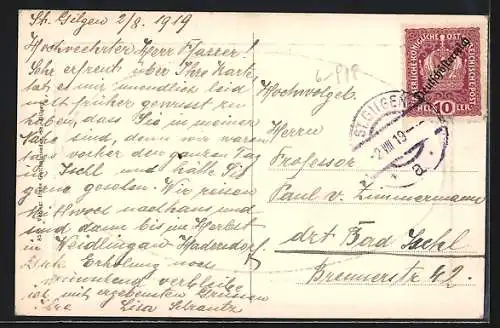 St. Gilgen 2/8. 1919
Hochverehrter Herr Pfarrer!
Sehr erfreut über Ihre Karte
tat es mir unendlich leid
nicht früher gewusst zu
haben, dass Sie in meiner
Nähe sind, denn wir waren
tags vorher den ganzen Tag
in Ischl und hätte Sie
gerne gesehen. Wir reisen
Mittwoch nachhaus und
sind dann bis im Herbst
in Weidlingau Hadersdorf.
Erholung noch
wünschend verbleibe
ich mit ergebensten Grüssen
Ihre Lisa
6-918
Hochwolgeb.
Herrn
Professor
Paul v. Zimmermann
dzt Bad Ischl
Brennerstr 42.
KAISERLICHE KÖNIGLICHE ÖSTERREICHISCHE POST
Deutschösterreich
HELLER 10
ST. GILGEN
-2.VIII 19-
a